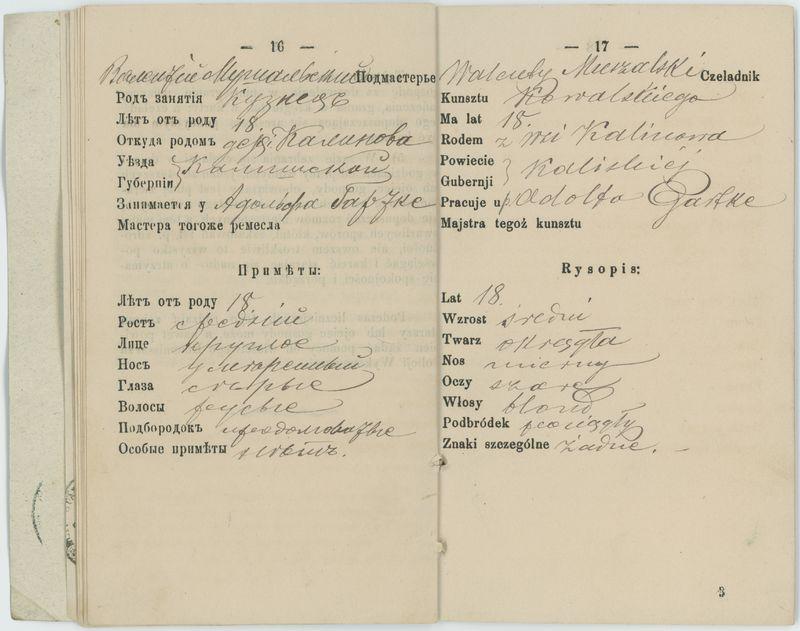 — 16 —
Подмастерье
Родъ занятія Кузнецъ
Лѣтъ отъ роду 18
Откуда родомъ дер. Калинова
Уѣзда
Губерніи } Калишской
Занимается у Адольфа Гартке
Мастера тогоже ремесла
Примѣты:
Лѣтъ отъ роду 18
Ростъ средній
Лице круглое
Носъ умѣренный
Глаза сѣрые
Волосы русые
Подбородокъ продолговатые
Особые примѣты нѣтъ.
— 17 —
Walenty Muszalski Czeladnik
Kunsztu Kowalskiego
Ma lat 18.
Rodem z wsi Kalinowa
Powiecie
Gubernji } Kaliskiej
Pracuje u p. Adolfa Gartke
Majstra tegoż kunsztu
Rysopis:
Lat 18
Wzrost średni
Twarz okrągła
Nos mierny
Oczy szare
Włosy blond
Podbródek pociągły
Znaki szczególne żadne. –
3